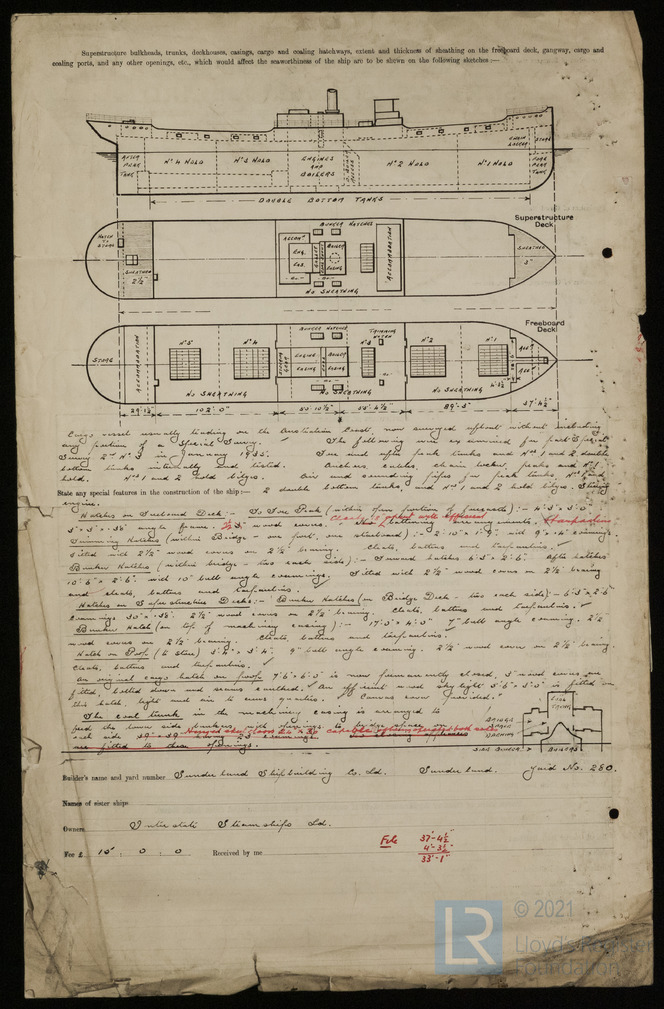 Superstructure bulkheads, trunks, deckhouses, casings, cargo and coaling hatchways, extent and thickness of sheathing on the freeboard deck, gangway, cargo and
coaling ports, and any other openings, etc., which would affect the seaworthiness of the ship are to be shewn on the following sketches:—
AFTER PEAK TANK
Nº 4 HOLD
Nº 3 HOLD
ENGINES AND BOILERS
Nº 2 HOLD
Nº 1 HOLD
CHAIN LOCKER
STORE
FORE PEAK TANK
DOUBLE BOTTOM TANKS
Superstructure Deck
HATCH TO STORE
SHEATHED 2½"
BUNKER HATCHES
ACCOM.
ENG. CAS.
BOILER CASING
ACCOMMODATION
NO SHEATHING
SHEATHED 3"
Freeboard Deck
STORE
ACCOMMODATION
Nº 5
Nº 4
BUNKER HATCHES
ENGINE CASING
BOILER CASING
Nº 3
TRIMMING HATCH
Nº 2
Nº 1
NO SHEATHING
NO SHEATHING
102'. 0"
50'. 10½"
55'. 4½"
89'. 3"
37'. 4½"
Cargo vessel usually trading on the Australian Coast, now surveyed afloat without including
any portion of a Special Survey. The following were examined for part Special
Survey 2nd Nº 3 in January 1935. Fore and after peak tanks and Nº 1 and 2 double
bottom tanks internally and tested. Anchors, cables, chain locker, peaks and Nº 1
hold. Nº 1 and 2 hold bilges. Air and sounding pipes for peak tanks, Nº 1 and
State any special features in the construction of the ship:— 2 double bottom tanks, and Nº 1 and 2 hold bilges. Steering
engine.
Hatches on Freeboard Deck:- To Fore Peak (within
3" × 3" × .36" angle frame. wood covers.
Trimming Hatches (within Bridge - one port, one starboard):- 2'.10" × 1'.9" with 9" × .40" coamings.
Fitted with 2½" wood covers on 2½" bearing. Cleats, battens and tarpaulins.
Bunker Hatches (within bridge - two each side):- Forward hatches 6'.3" × 2'.6". After hatches
10'.6" × 2'.6" with 10" bulb angle coamings. Fitted with 2½" wood covers on 2½" bearing
and cleats, battens and tarpaulins.
Hatches on Superstructure Decks:- Bunker Hatches (on Bridge Deck - two each side):- 6'.3" × 2'.6"
coamings 30" × .36". 2½" wood covers on 2½" bearing. Cleats, battens and tarpaulins.
Bunker Hatch (on top of machinery casing):- 17'.0" × 4'.0" 7" bulb angle coaming. 2½"
wood covers on 2½" bearing. Cleats, battens and tarpaulins.
Hatch on Poop (to store) 3'.4" × 3'.4". 9" bulb angle coaming. 2½" wood cover on 2½" bearing.
Cleats, battens and tarpaulins.
An original cargo hatch on poop 7'.6" × 6'.0" is now permanently closed, 3" wood covers are
fitted, bolted down and seams caulked. An efficient wood skylight 5'.6" × 3'.0" is fitted on
this hatch, light and air to crews quarters. Canvas cover provided.
The coal trunk in the machinery casing is arranged to
feed the lower side bunkers, with openings to bridge space on
each side 39" × 39"
are fitted to these openings.
SIDE BUNKER
BOILERS
Builder's name and yard number Sunderland Shipbuilding Co. Ld. Sunderland. Yard No. 280.
Names of sister ships
Owners Interstate Steamships Ld.
Fee £ 10 : 0 : 0 Received by me
Fcle
37'-4½"
4'-3½"
33'-1"
© 2021
Lloyd's Register
Foundation
LR